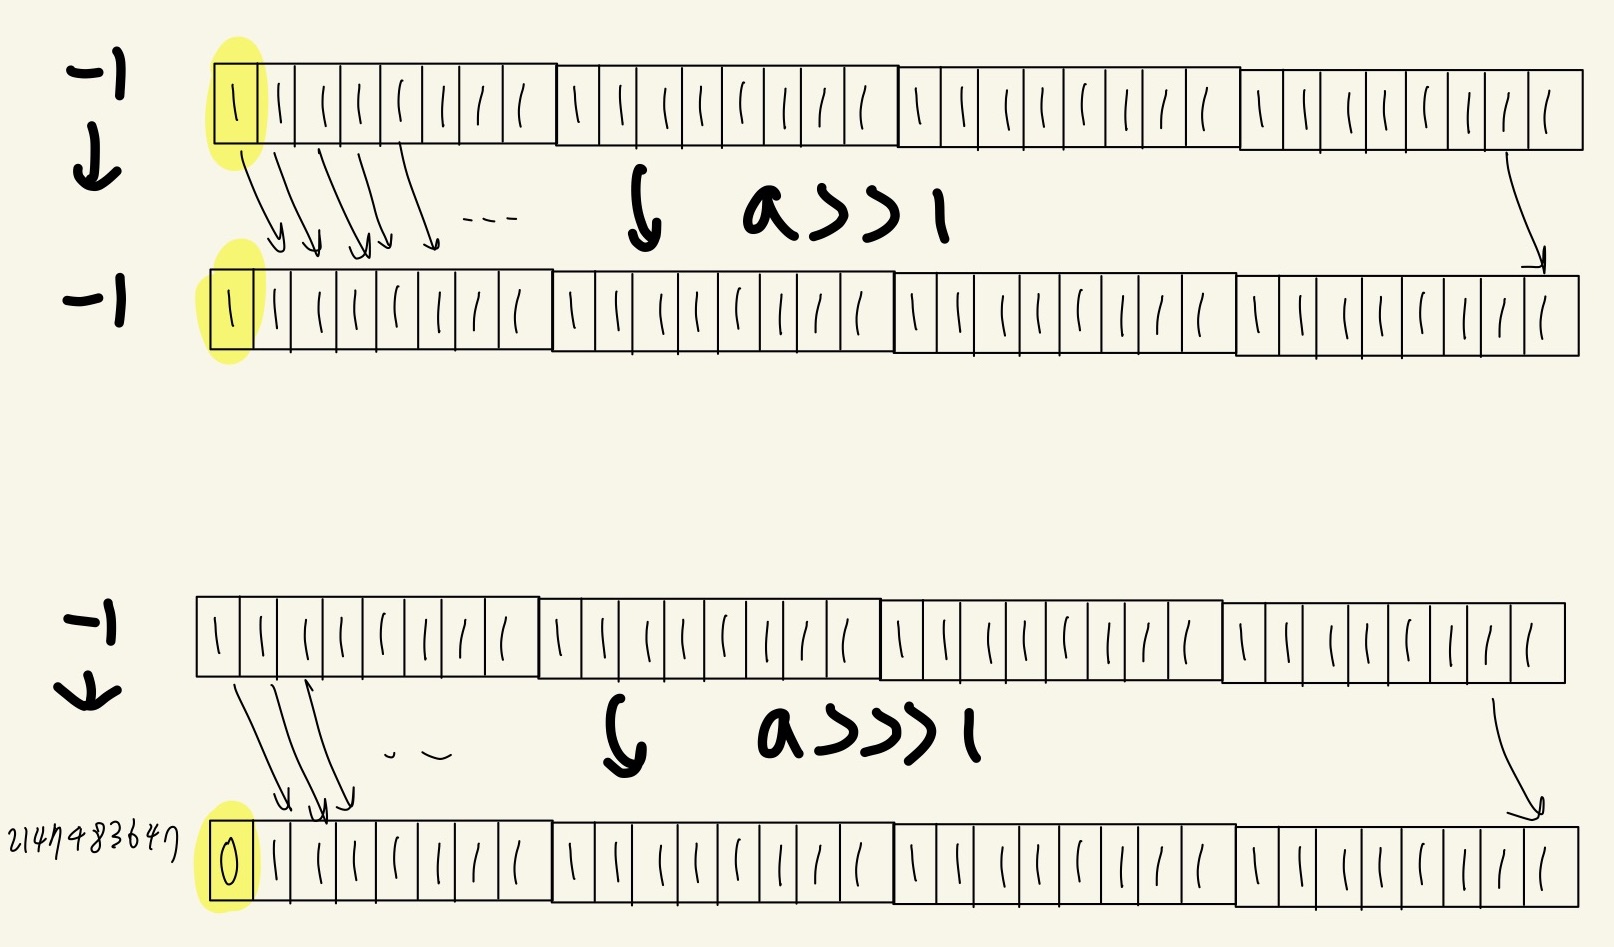 -1 1 1 1 1 1 1 1 1 1 1 1 1 1 1 1 1 1 1 1 1 1 1 1 1 1 1 1 1 1 1 1 1
a>>1
-1 1 1 1 1 1 1 1 1 1 1 1 1 1 1 1 1 1 1 1 1 1 1 1 1 1 1 1 1 1 1 1 1
-1 1 1 1 1 1 1 1 1 1 1 1 1 1 1 1 1 1 1 1 1 1 1 1 1 1 1 1 1 1 1 1 1
a>>>1
2147483647 0 1 1 1 1 1 1 1 1 1 1 1 1 1 1 1 1 1 1 1 1 1 1 1 1 1 1 1 1 1 1 1